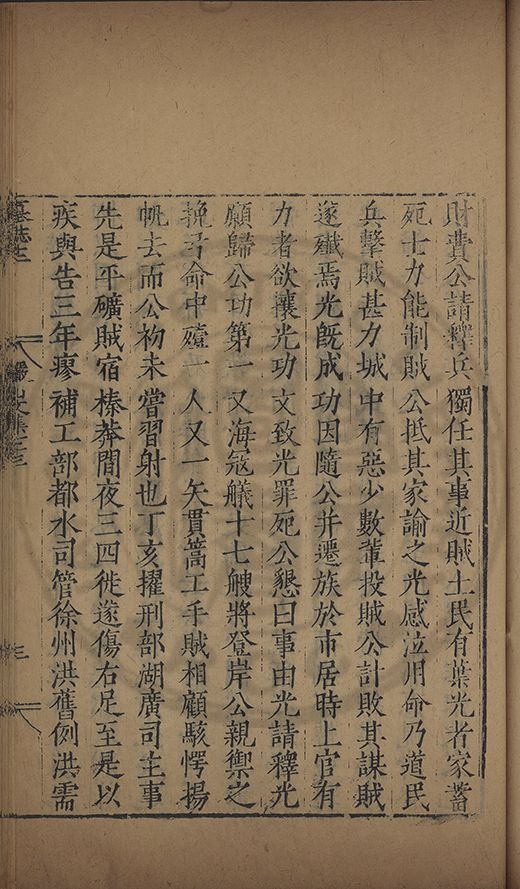 財費公請釋兵獨任其事近賊土民有葉光者家蓄
死士力能制賊公抵其家諭之光感泣用命乃道民
兵擊賊甚力城中有惡少數輩投賊公計敗其謀賊
遂殱焉光旣成功因隨公并遷族於市居時上官有
力者欲攘光功文致光罪死公懇曰事由光請釋光
願歸公功第一又海冦艤十七艘將登岸公親禦之
挽弓命中殪一人又一矢貫篙工手賊相顧駭愕揚
帆去而公初未嘗習射也丁亥擢刑部湖廣司主事
先是平礦賊宿榛莽間夜三四徙遂傷右足至是以
疾與告三年瘳補工部都水司管徐州洪舊例洪需